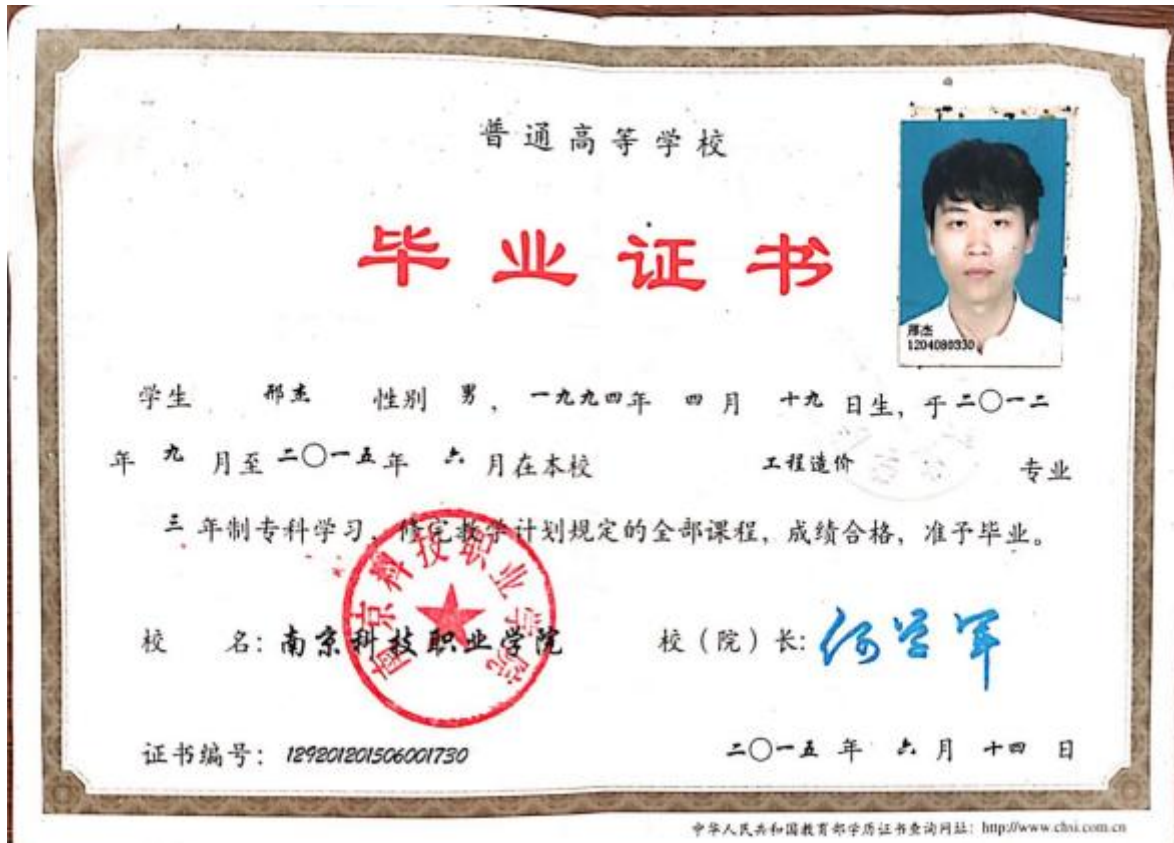 普通高等学校
毕业证书
邢杰
1204080330
学生 邢杰 性别 男，一九九四年 四 月 十九 日生，于二〇一二
年 九 月至二〇一五年 六 月在本校 工程造价 专业
三 年制专科学习，修完教学计划规定的全部课程，成绩合格，准予毕业。
南京科技职业学院
校 名：南京科技职业学院 校（院）长：
证书编号：129201201506001730 二〇一五 年 六 月 十四 日
中华人民共和国教育部学历证书查询网址：http://www.chsi.com.cn